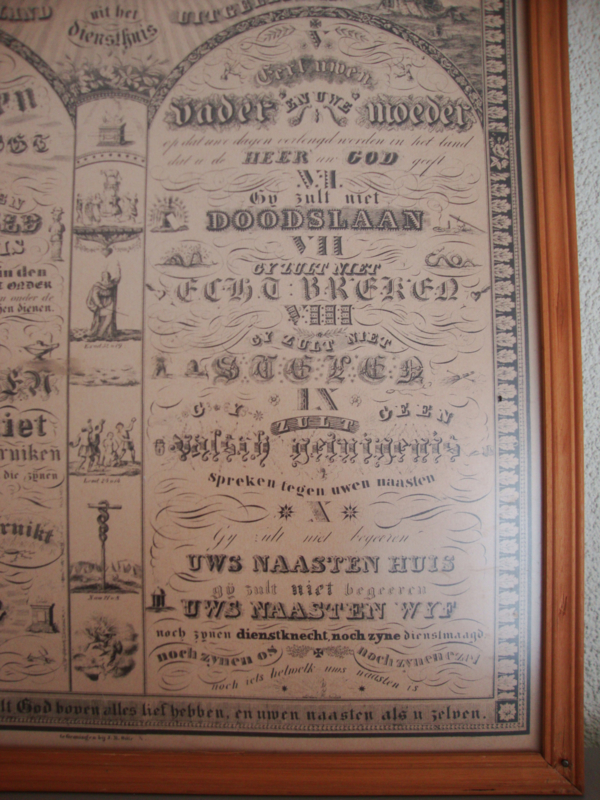 LAND
UITGEL
uit het
diensthuis
V
Eert uwen
vader EN UWE moeder
op dat uwe dagen verlengd worden in het land
dat u de HEER uw GOD geeft
VI.
Gy zult niet
DOODSLAAN
VII
GY ZULT NIET
ECHT BREKEN
VIII
GY ZULT NIET
STELEN
IX
GY ZULT GEEN
valsch getuigenis
Spreken tegen uwen naasten
X
Gy zult niet begeeren
UWS NAASTEN HUIS
gy zult niet begeeren
UWS NAASTEN WYF
noch zynen dienstknecht, noch zyne dienstmaagd
noch zynen os noch zynen ezel
noch iets hetwelk uws naasten is
en
in den
onder de
en dienen.
EN
iet
ruiken
die zynen
ruikt
lt God boven alles lief hebben, en uwen naasten als u zelven.